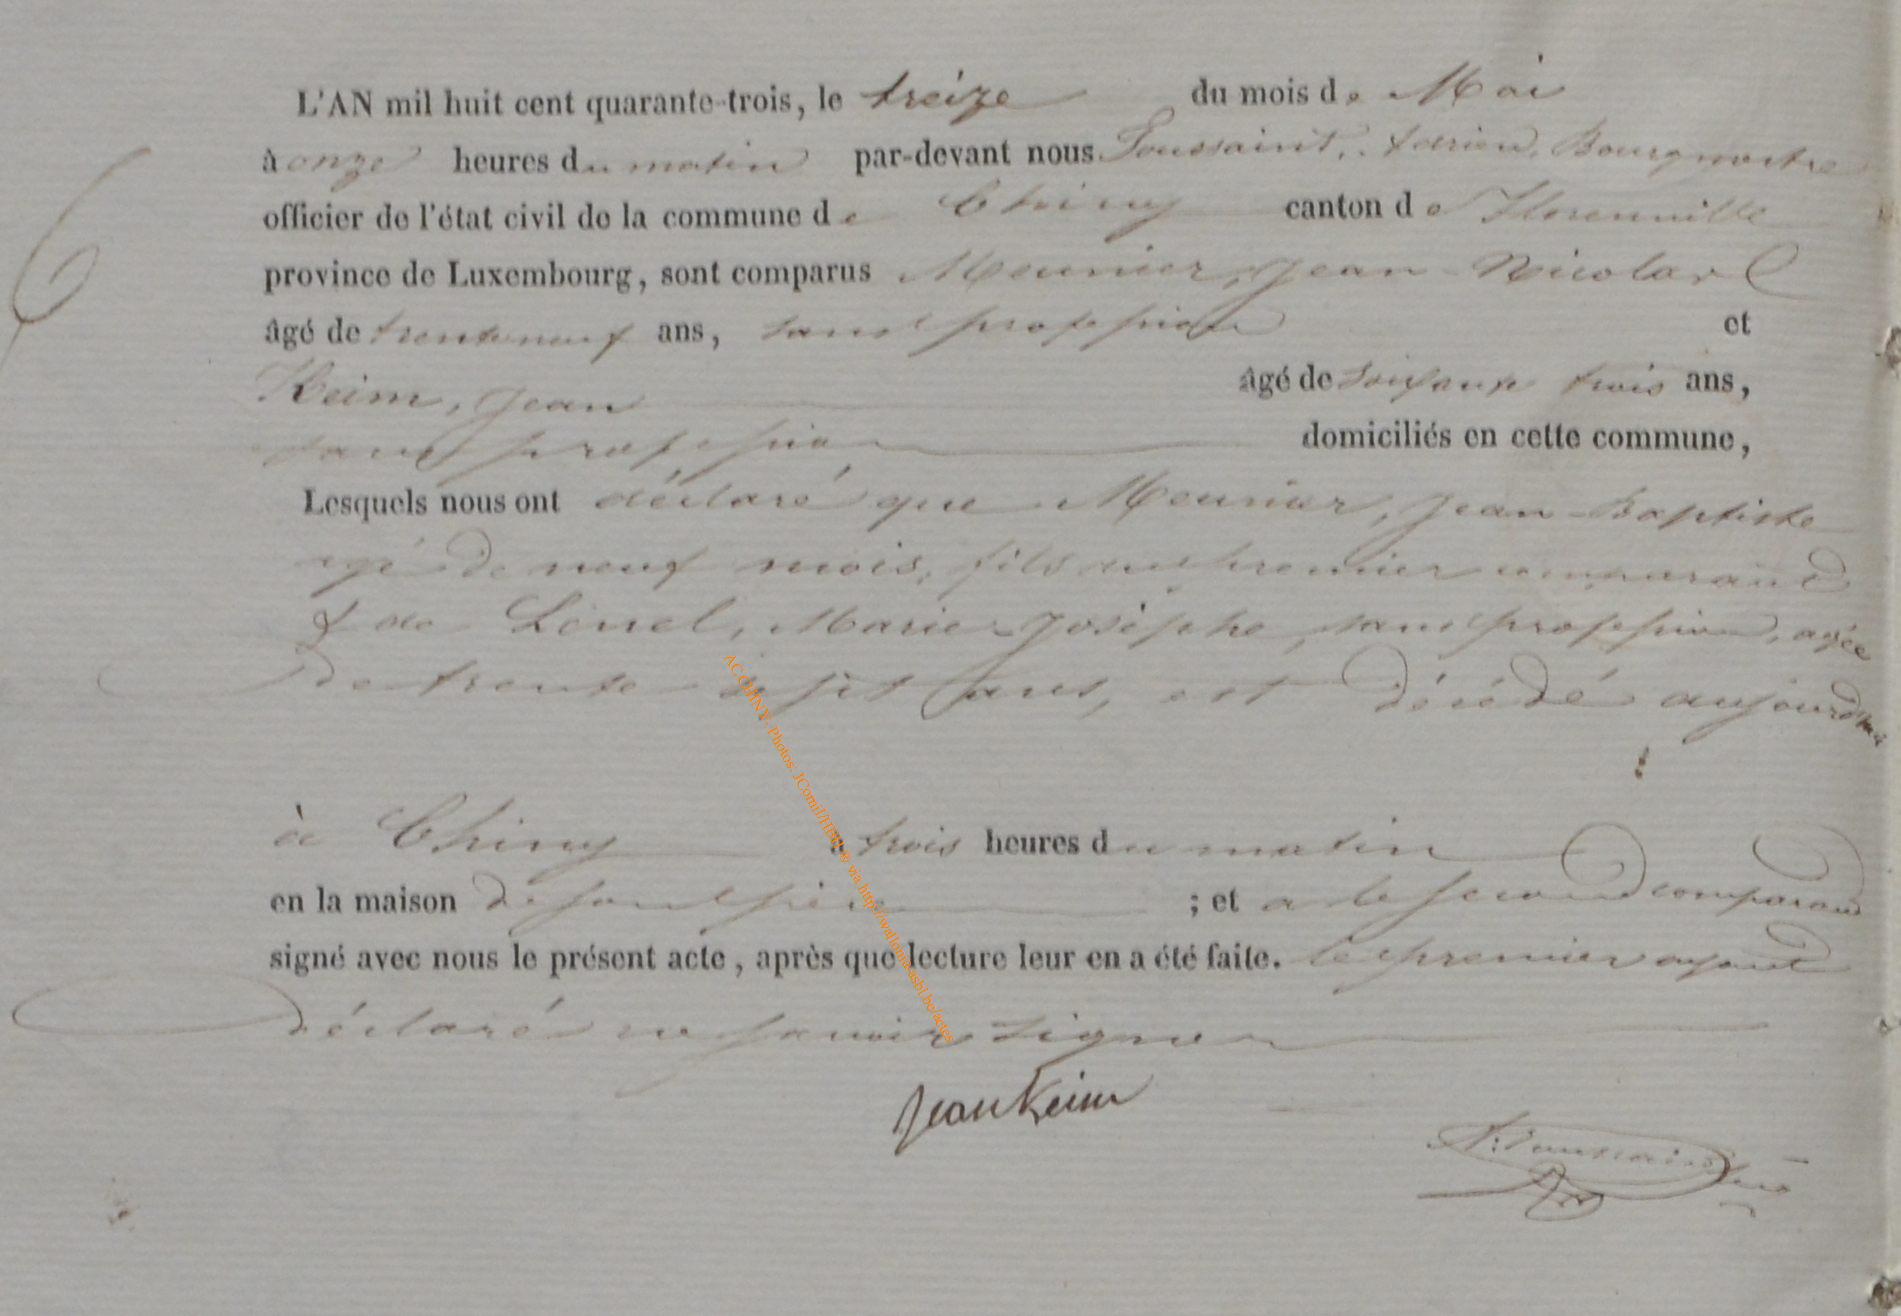 L'AN mil huit cent quarante-trois, le treize du mois de Mai
à onze heures du matin par-devant nous Toussaint, Adrien, Bourgmestre
officier de l'état civil de la commune de Chiny canton de Florenville
province de Luxembourg, sont comparus Meunier, Jean-Nicolas
âgé de trente neuf ans, sans profession et
Keim, Jean âgé de soixante trois ans,
sans profession domiciliés en cette commune,
Lesquels nous ont déclaré que Meunier, Jean-Baptiste
agé de neuf mois, fils du premier comparant
& de Marie-Josèphe, sans profession, agée
de trente sept ans, est décédé aujourd'hui
à Chiny à trois heures du matin
en la maison de son père ; et a le second comparant
signé avec nous le présent acte, après que lecture leur en a été faite. le premier ayant
déclaré ne savoir signer
Jean Keim
A: Toussaint
6
ACCHINY- Photos: JCornil/HistGen via http://wallonica.asbl.be/actes